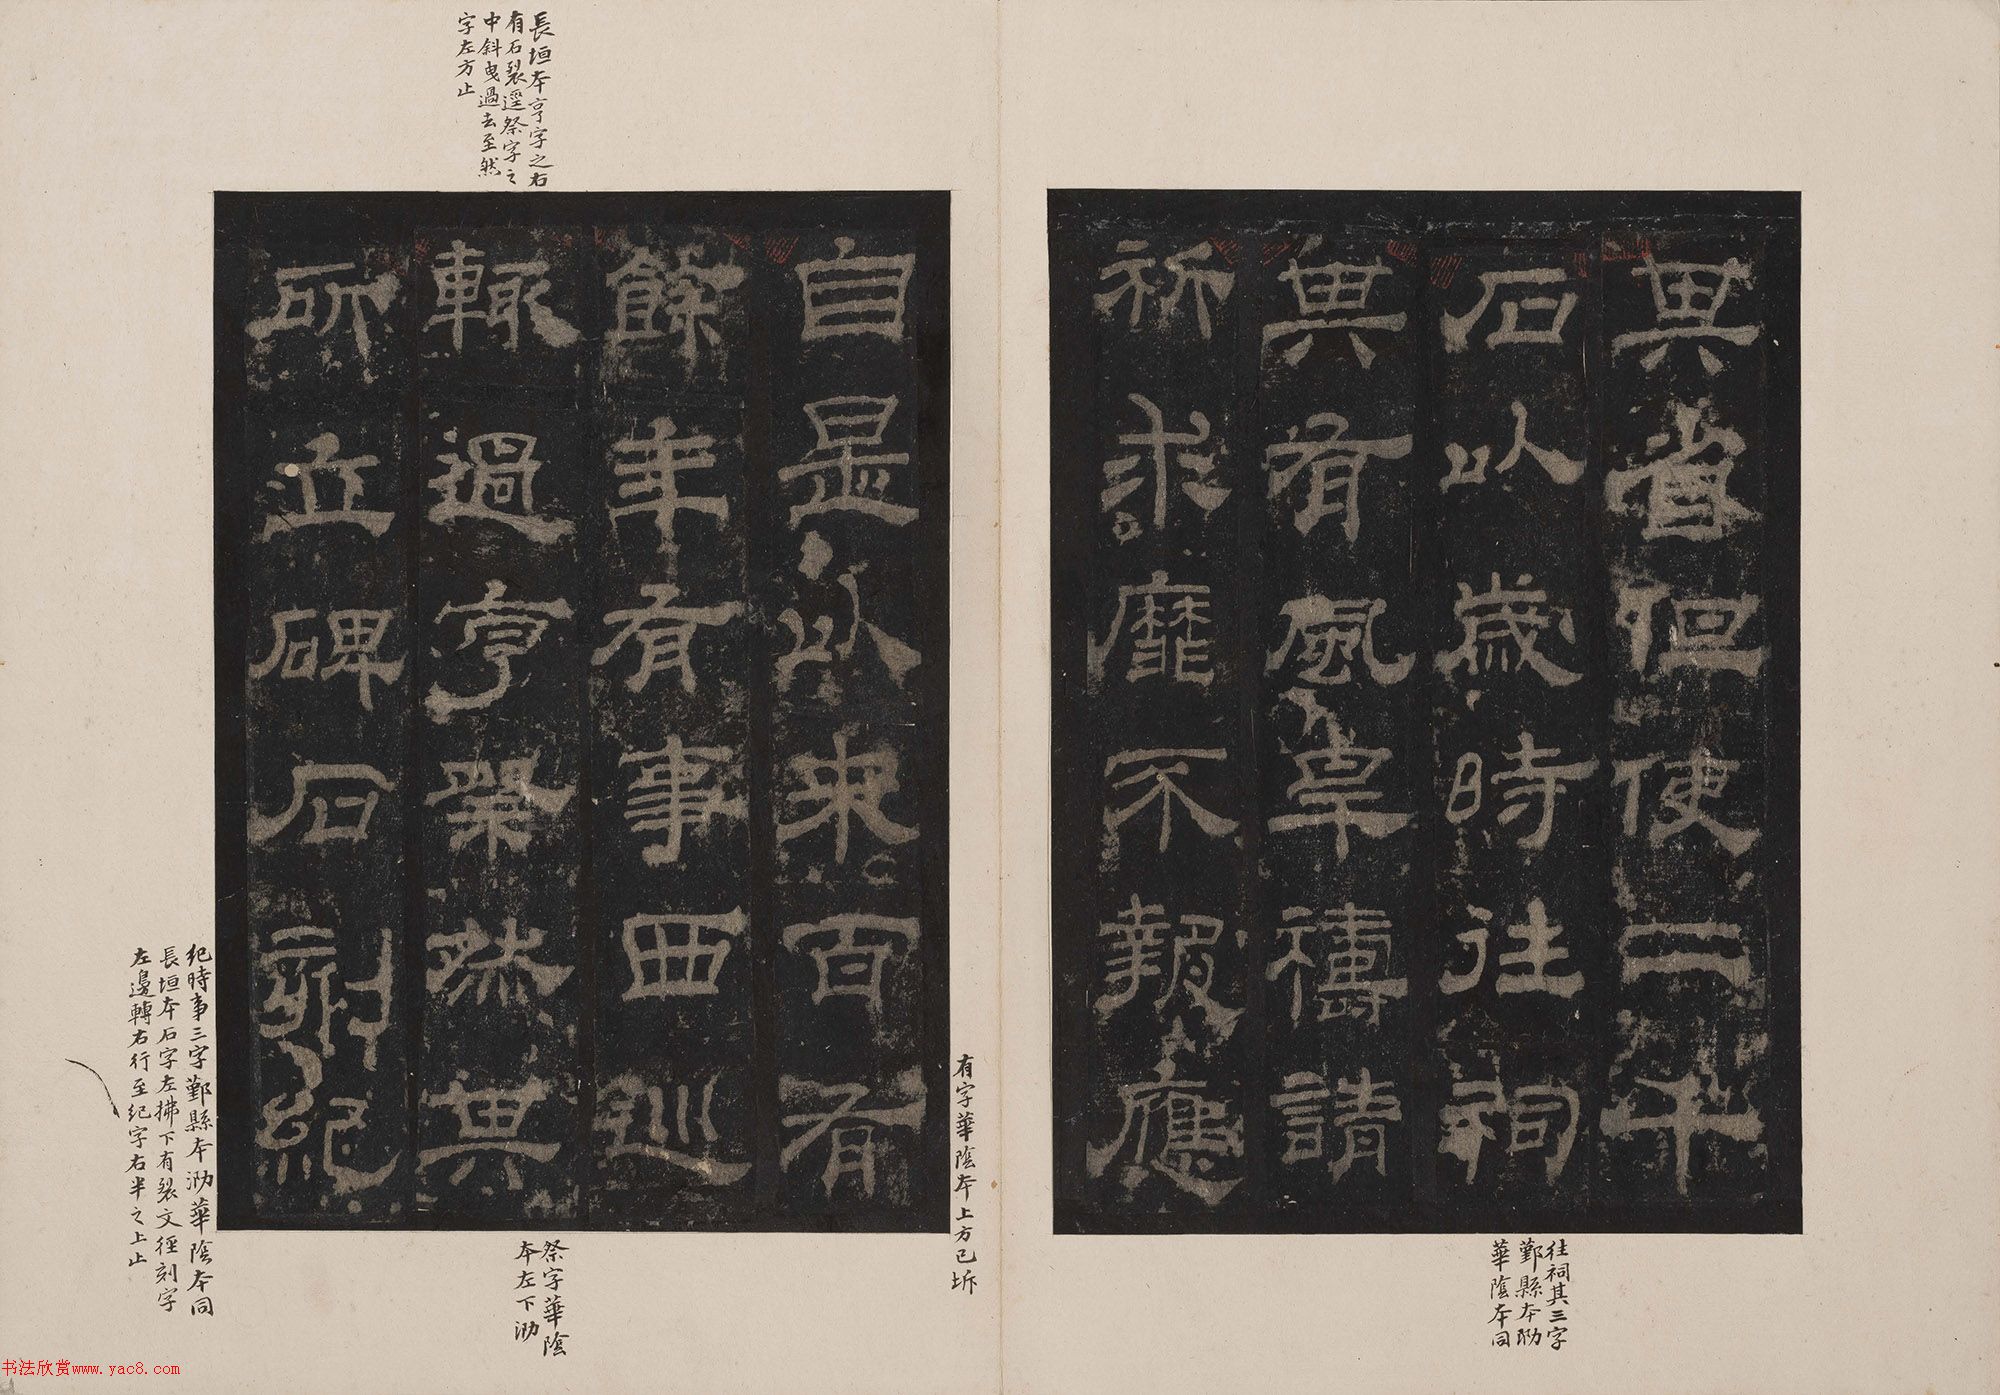 其省但使二千
石以歲時往祠
其有風旱禱請
祈求靡不報應
往祠其三字
鄞縣本泐
華陰本同
自是以來百有
餘年有事西巡
輒過亨祭然其
所立碑石刻紀
有字華陰本上方已坼
長垣本亨字之右
有石裂逕祭字之
中斜曳過去至然
字左方止
祭字華陰
本左下泐
紀時事三字鄞縣本泐華陰本同
長垣本石字左拂下有裂文徑刻字
左邊轉右行至紀字右半之上止
书法欣赏www.yac8.com